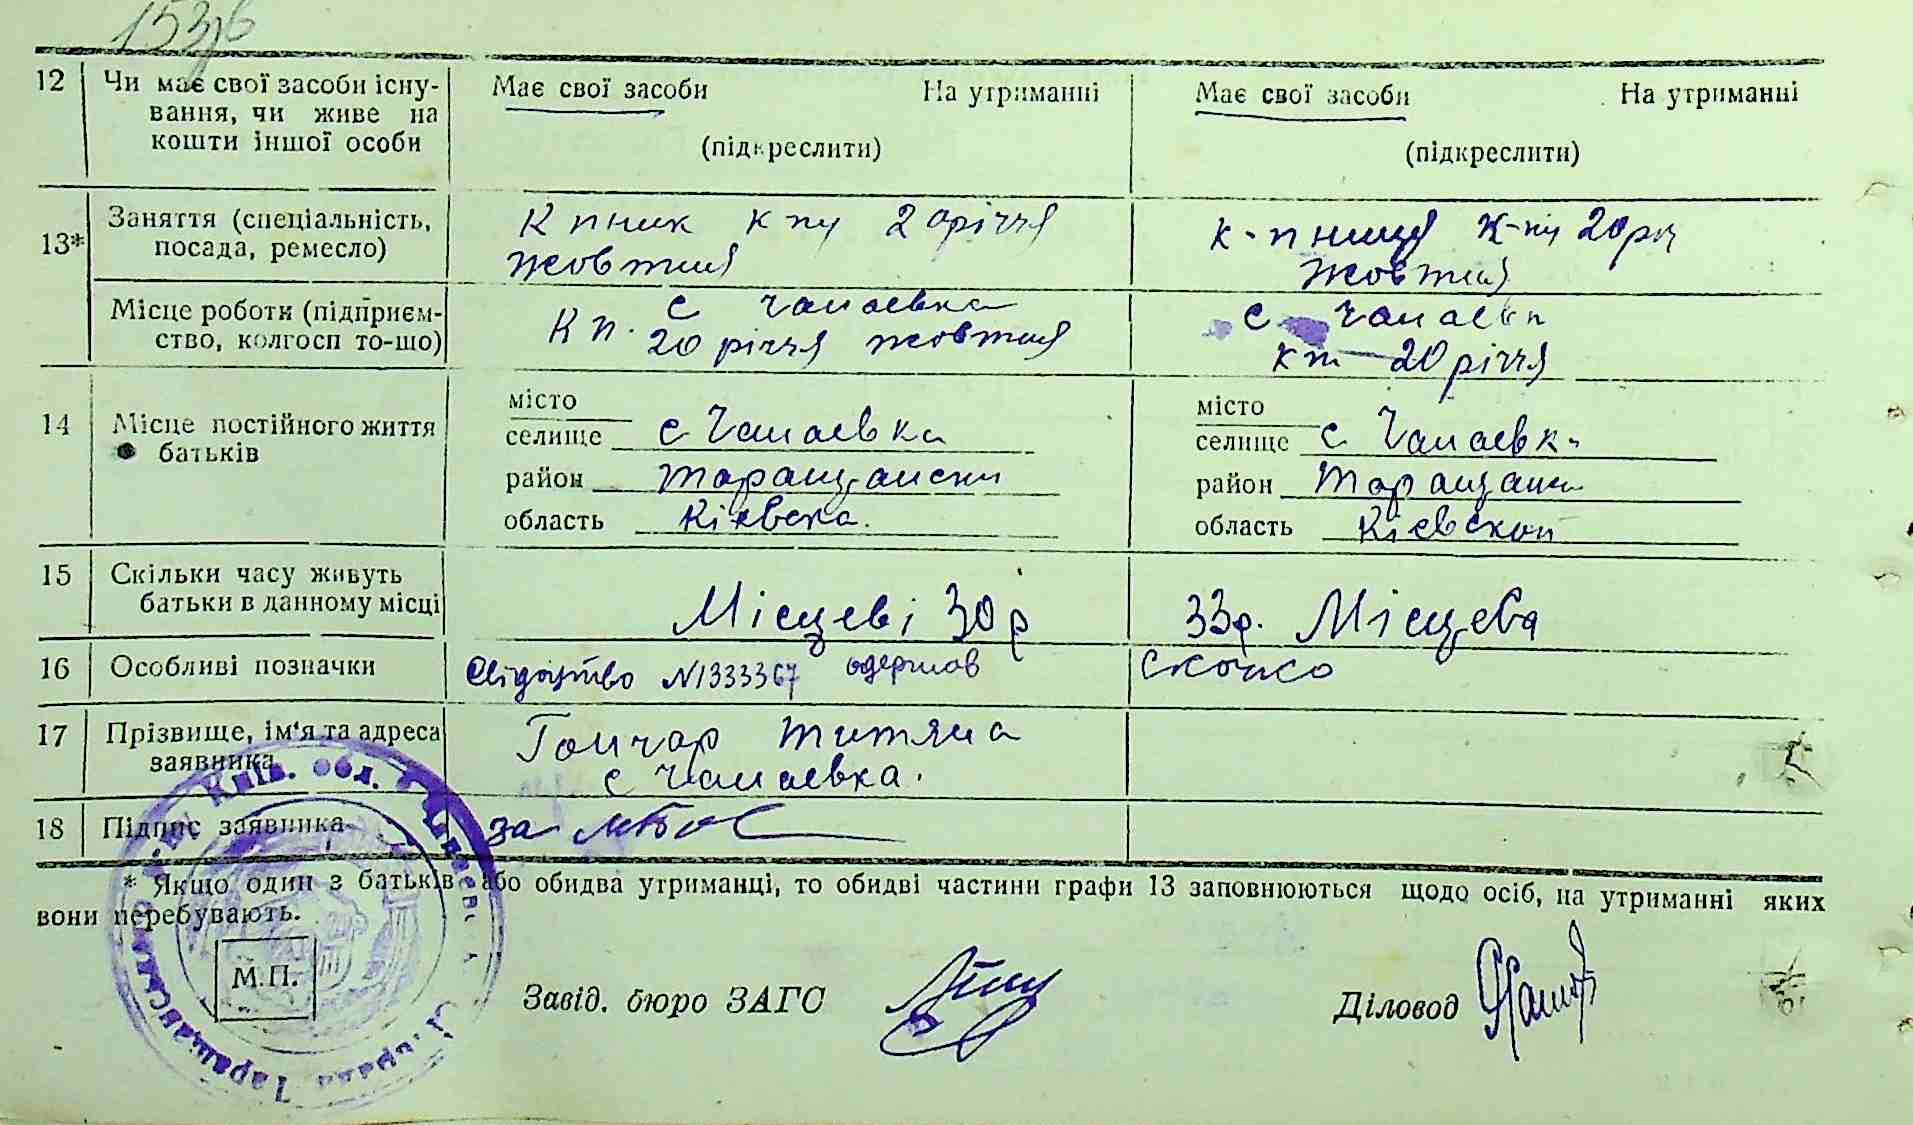 153
12 Чи має свої засоби існу- Має свої засоби На утриманні Має свої засоби На утриманні
вання, чи живе на
кошти іншої особи (підкреслити) (підкреслити)
13* Заняття (спеціальність, К пник к пу 20 річчя к-пниця К-пу 20 рч
посада, ремесло) жовтня жовтня
Місце роботи (підприєм- с Чапаевка с Чапаевк
ство, колгосп то-що) Кп. 20 річчя жовтня кп 20 річчя
14 Місце постійного життя місто місто
батьків селище с Чапаевка селище с Чапаевк
район Таращански район Таращанс
область Кіевска. область Кіевской
15 Скільки часу живуть
батьки в данному місці Місцеві 30 р 33р. Місцева
16 Особливі позначки Свідоцтво N1333367 одержав
17 Прізвище, ім'я та адреса Гончар Титяна
заявника с Чапаевка.
18 Підпис заявника за
* Якщо один з батьків або обидва утриманці, то обидві частини графи 13 заповнюються щодо осіб, на утриманні яких
вони перебувають.
М.П.
Завід. бюро ЗАГС Діловод
Київ. обл.